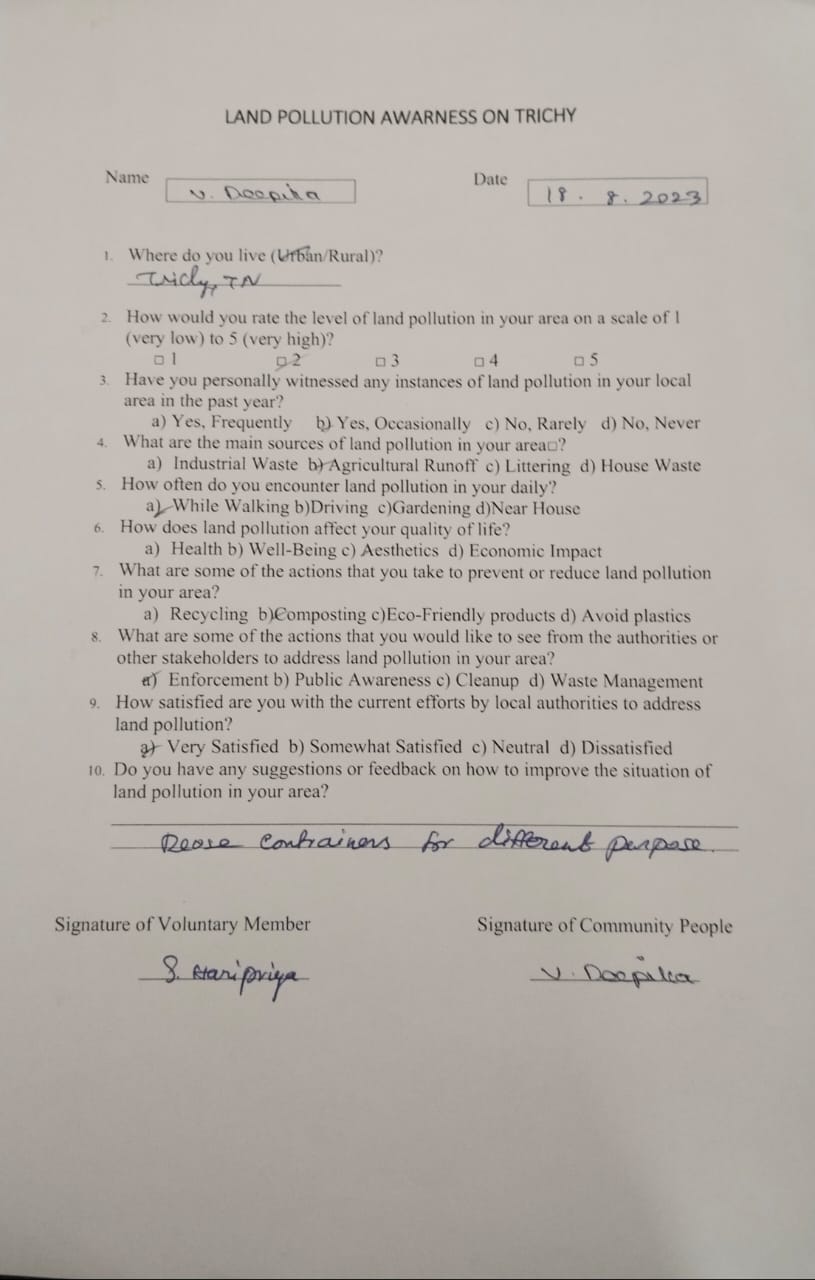 LAND POLLUTION AWARNESS ON TRICHY
Name V. Deepika Date 18. 8. 2023
1. Where do you live (Urban/Rural)?
Trichy, TN
2. How would you rate the level of land pollution in your area on a scale of 1
(very low) to 5 (very high)?
□ 1 □ 2 □ 3 □ 4 □ 5
3. Have you personally witnessed any instances of land pollution in your local
area in the past year?
a) Yes, Frequently b) Yes, Occasionally c) No, Rarely d) No, Never
4. What are the main sources of land pollution in your area□?
a) Industrial Waste b) Agricultural Runoff c) Littering d) House Waste
5. How often do you encounter land pollution in your daily?
a) While Walking b)Driving c)Gardening d)Near House
6. How does land pollution affect your quality of life?
a) Health b) Well-Being c) Aesthetics d) Economic Impact
7. What are some of the actions that you take to prevent or reduce land pollution
in your area?
a) Recycling b)Composting c)Eco-Friendly products d) Avoid plastics
8. What are some of the actions that you would like to see from the authorities or
other stakeholders to address land pollution in your area?
a) Enforcement b) Public Awareness c) Cleanup d) Waste Management
9. How satisfied are you with the current efforts by local authorities to address
land pollution?
a) Very Satisfied b) Somewhat Satisfied c) Neutral d) Dissatisfied
10. Do you have any suggestions or feedback on how to improve the situation of
land pollution in your area?
Reose Contrainers for different perpose.
Signature of Voluntary Member Signature of Community People
S. Haripriya V. Deepika